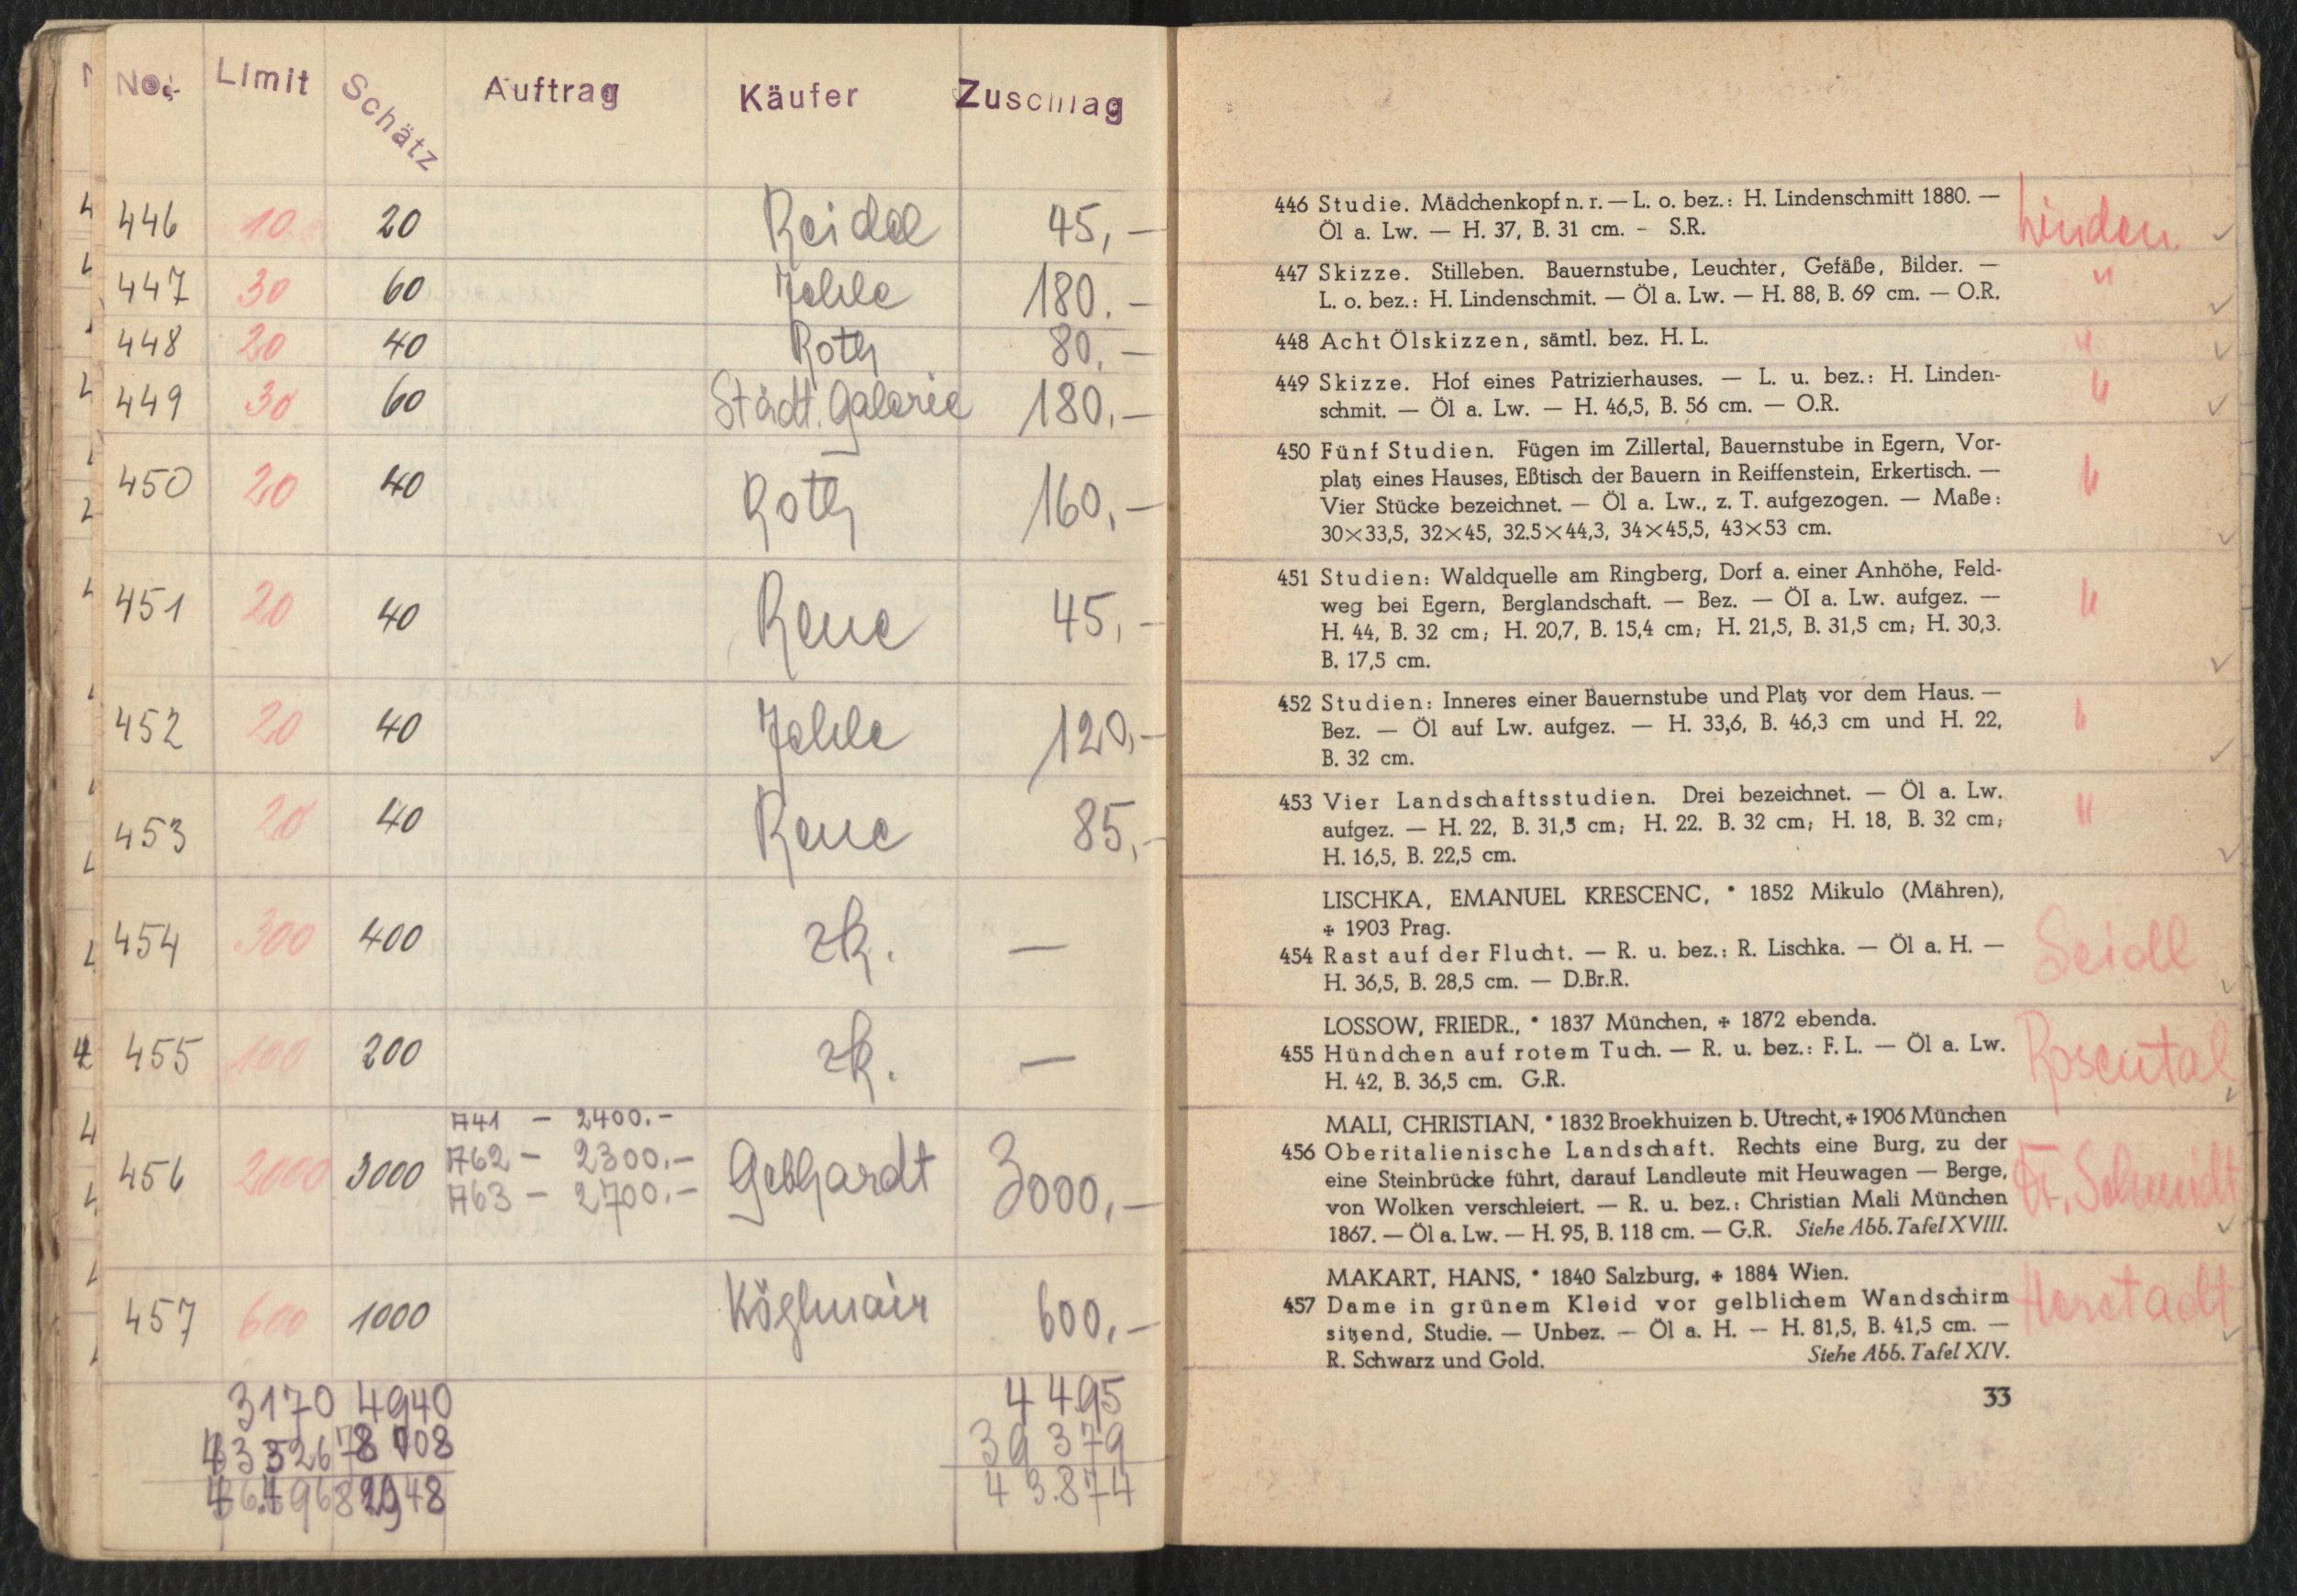 No. Limit Schätz Auftrag Käufer Zuschlag
446 10 20 Reidel 45,—
447 30 60 Jehle 180.—
448 20 40 Roth 80,—
449 30 60 Städt. Galerie 180,—
450 20 40 Roth 160,—
451 20 40 Rene 45,—
452 20 40 Jehle 120,—
453 20 40 Rene 85,—
454 300 400 zk. —
455 100 200 zk. —
741 — 2400.—
456 2000 3000 762 — 2300.— Gebhardt 3000,—
763 — 2700.—
457 600 1000 Köglmair 600,—
3170 4940 4495
78 108 39 379
43.874
446 Studie. Mädchenkopf n. r. — L. o. bez.: H. Lindenschmitt 1880. —
Öl a. Lw. — H. 37, B. 31 cm. - S.R.
Linden.
447 Skizze. Stilleben. Bauernstube, Leuchter, Gefäße, Bilder. —
L. o. bez.: H. Lindenschmit. — Öl a. Lw. — H. 88, B. 69 cm. — O.R.
"
448 Acht Ölskizzen, sämtl. bez. H. L.
"
449 Skizze. Hof eines Patrizierhauses. — L. u. bez.: H. Linden-
schmit. — Öl a. Lw. — H. 46,5, B. 56 cm. — O.R.
"
450 Fünf Studien. Fügen im Zillertal, Bauernstube in Egern, Vor-
platz eines Hauses, Eßtisch der Bauern in Reiffenstein, Erkertisch. —
Vier Stücke bezeichnet. — Öl a. Lw., z. T. aufgezogen. — Maße:
30×33,5, 32×45, 32.5×44,3, 34×45,5, 43×53 cm.
"
451 Studien: Waldquelle am Ringberg, Dorf a. einer Anhöhe, Feld-
weg bei Egern, Berglandschaft. — Bez. — Öl a. Lw. aufgez. —
H. 44, B. 32 cm; H. 20,7, B. 15,4 cm; H. 21,5, B. 31,5 cm; H. 30,3.
B. 17,5 cm.
"
452 Studien: Inneres einer Bauernstube und Platz vor dem Haus. —
Bez. — Öl auf Lw. aufgez. — H. 33,6, B. 46,3 cm und H. 22,
B. 32 cm.
"
453 Vier Landschaftsstudien. Drei bezeichnet. — Öl a. Lw.
aufgez. — H. 22, B. 31,5 cm; H. 22. B. 32 cm; H. 18, B. 32 cm;
H. 16,5, B. 22,5 cm.
"
LISCHKA, EMANUEL KRESCENC, * 1852 Mikulo (Mähren),
✠ 1903 Prag.
454 Rast auf der Flucht. — R. u. bez.: R. Lischka. — Öl a. H. —
H. 36,5, B. 28,5 cm. — D.Br.R.
Seidl
LOSSOW, FRIEDR., * 1837 München, ✠ 1872 ebenda.
455 Hündchen auf rotem Tuch. — R. u. bez.: F. L. — Öl a. Lw.
H. 42, B. 36,5 cm. G.R.
Rosental
MALI, CHRISTIAN, * 1832 Broekhuizen b. Utrecht, ✠ 1906 München
456 Oberitalienische Landschaft. Rechts eine Burg, zu der
eine Steinbrücke führt, darauf Landleute mit Heuwagen — Berge,
von Wolken verschleiert. — R. u. bez.: Christian Mali München
1867. — Öl a. Lw. — H. 95, B. 118 cm. — G.R. Siehe Abb. Tafel XVIII.
Schmidt
MAKART, HANS, * 1840 Salzburg, ✠ 1884 Wien.
457 Dame in grünem Kleid vor gelblichem Wandschirm
sitzend, Studie. — Unbez. — Öl a. H. — H. 81,5, B. 41,5 cm. —
R. Schwarz und Gold. Siehe Abb. Tafel XIV.
Horstadt
33